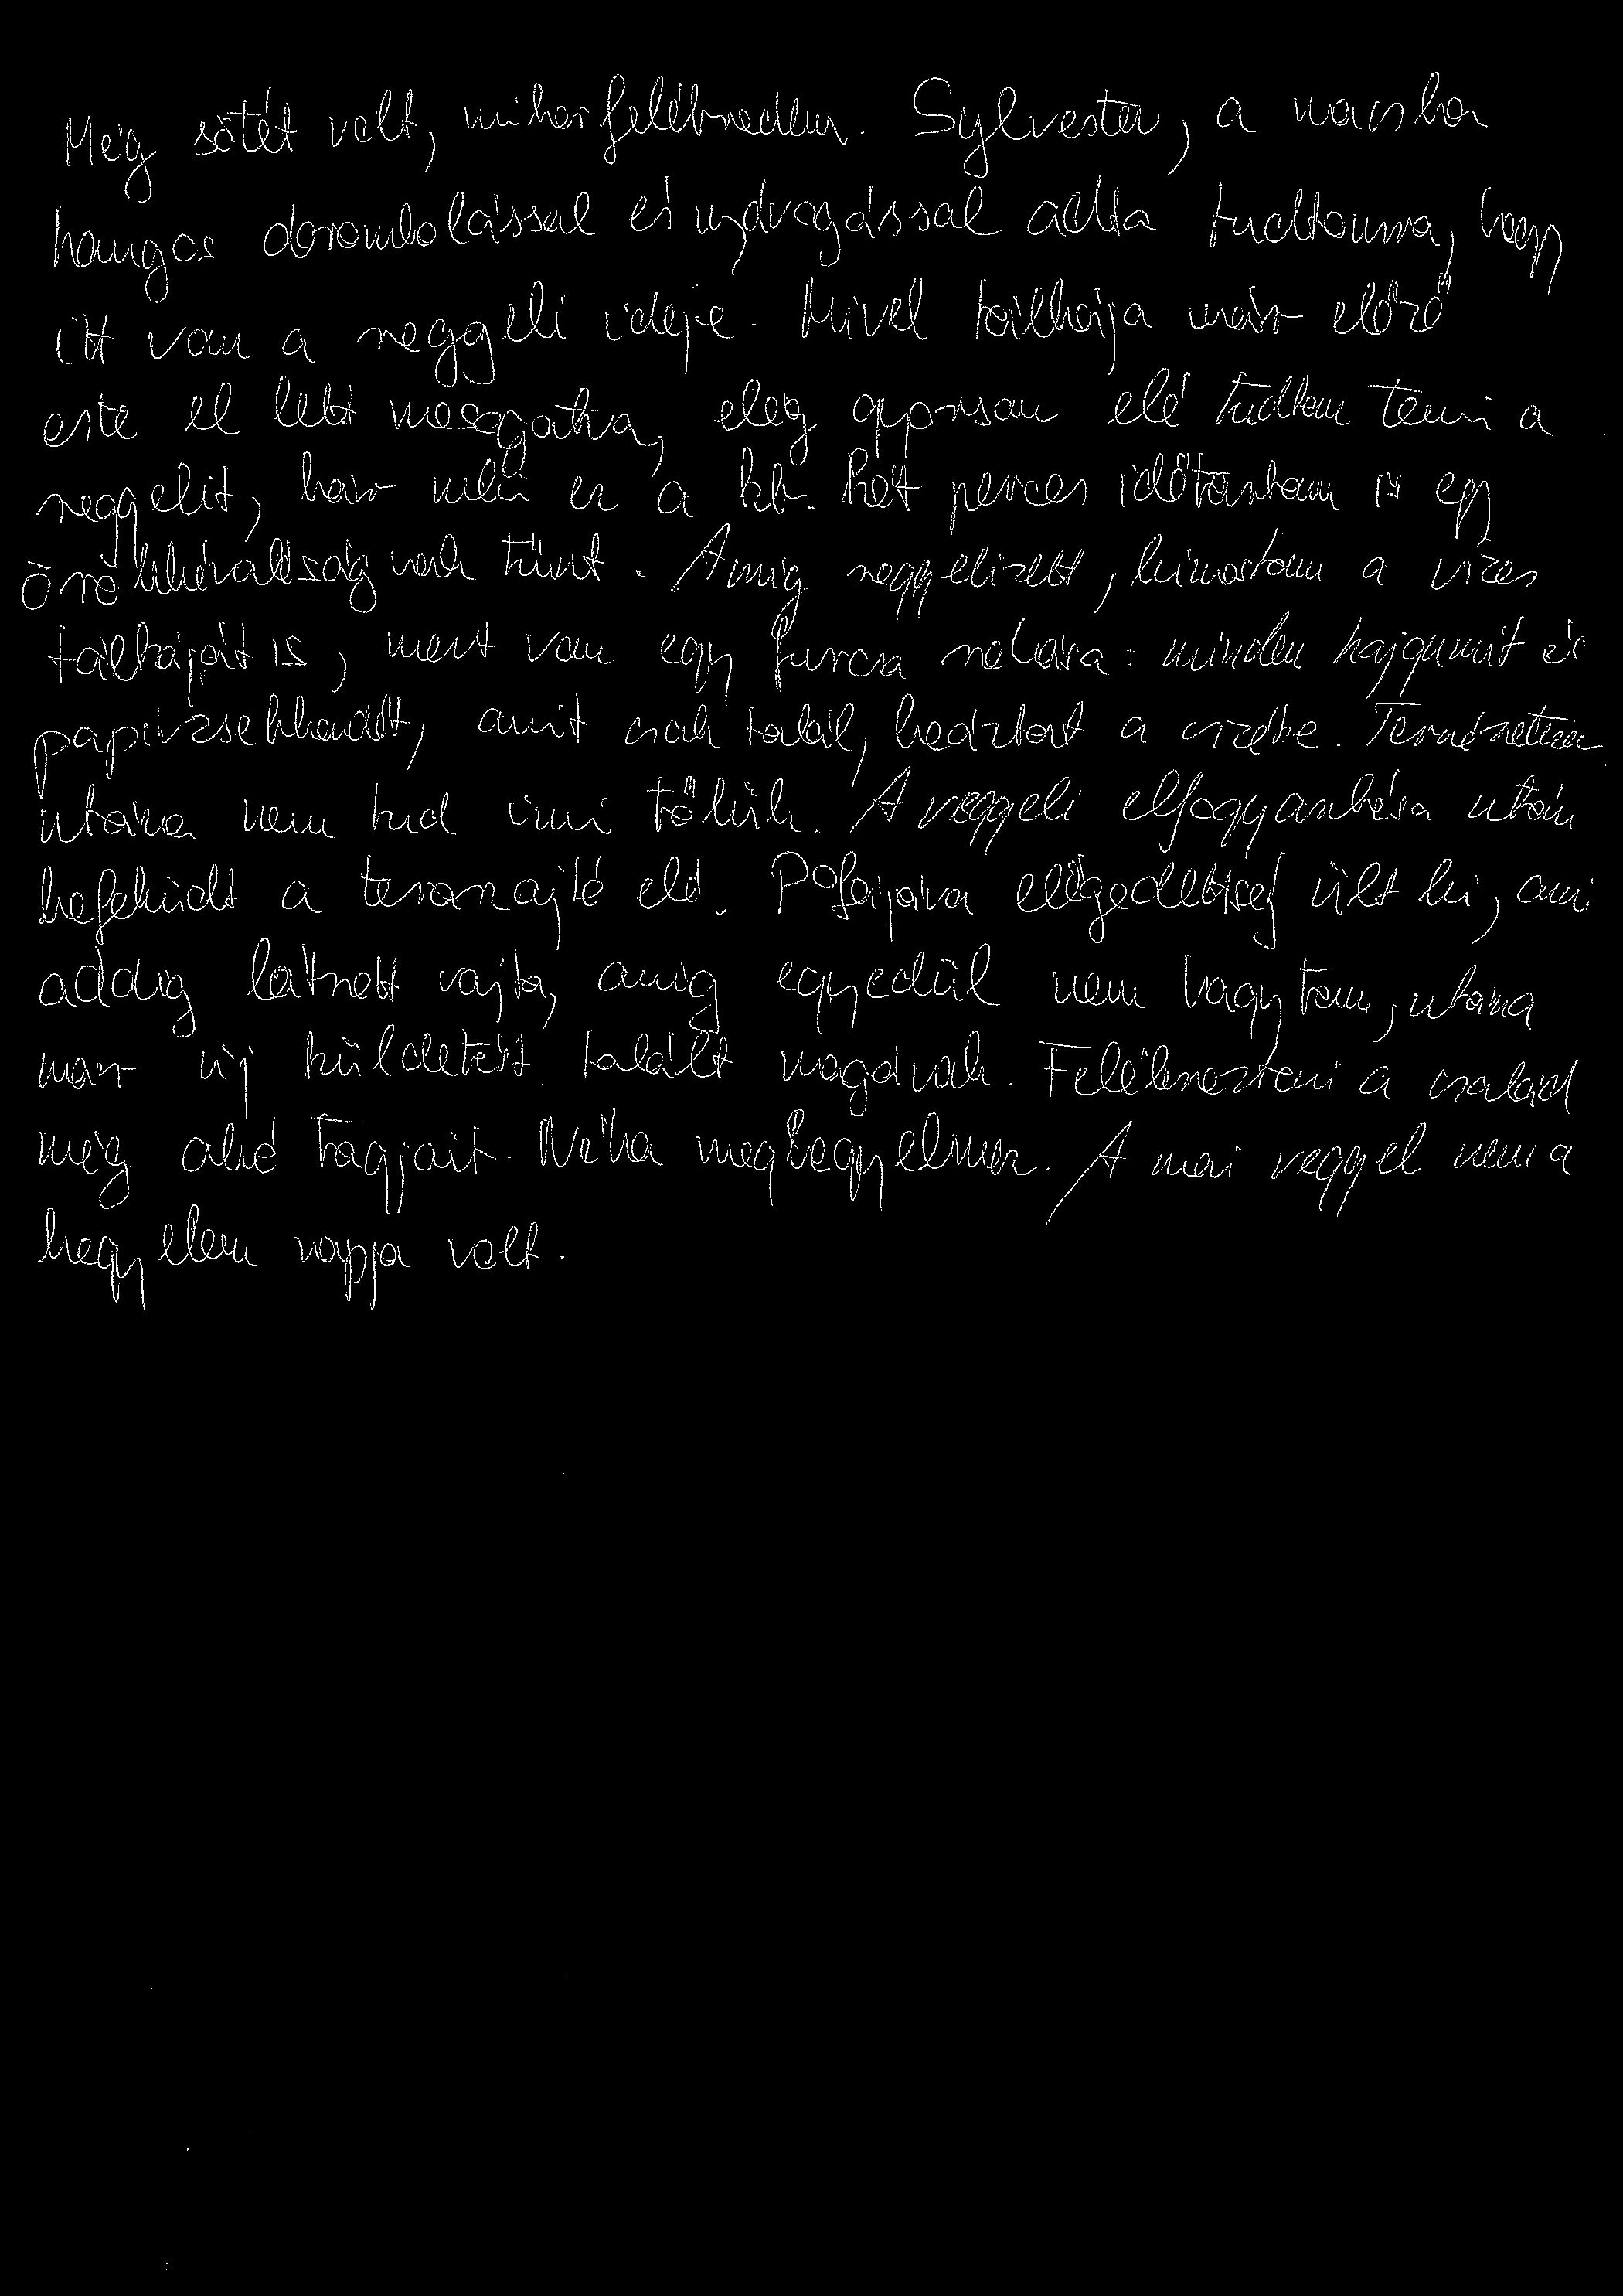 Még sötét volt, mikor felébredtem. Sylvester, a macska
hangos dorombolással és nyávogással adta tudtomra, hogy
itt van a reggeli ideje. Mivel tálkája már előző
este el lett mosogatva, elég gyorsan elé tudtam tenni a
reggelit, bár neki ez a kb. két perces időtartam is egy
örökkévalóságnak tűnt. Amíg reggelizett, kimostam a vizes
tálkáját is, mert van egy furcsa szokása: minden hajgumit és
papírzsebkendőt, amit csak talál, beáztat a vízbe. Természetesen
utána nem tud inni tőlük. A reggeli elfogyasztása után
befeküdt a teraszajtó elé. Pofájára elégedettség ült ki, ami
addig látszott rajta, amíg egyedül nem hagytam, utána
már új küldetést talált magának. Felébreszteni a család
még alvó tagjait. Néha megkegyelmez. A mai reggel nem a
kegyelem napja volt.